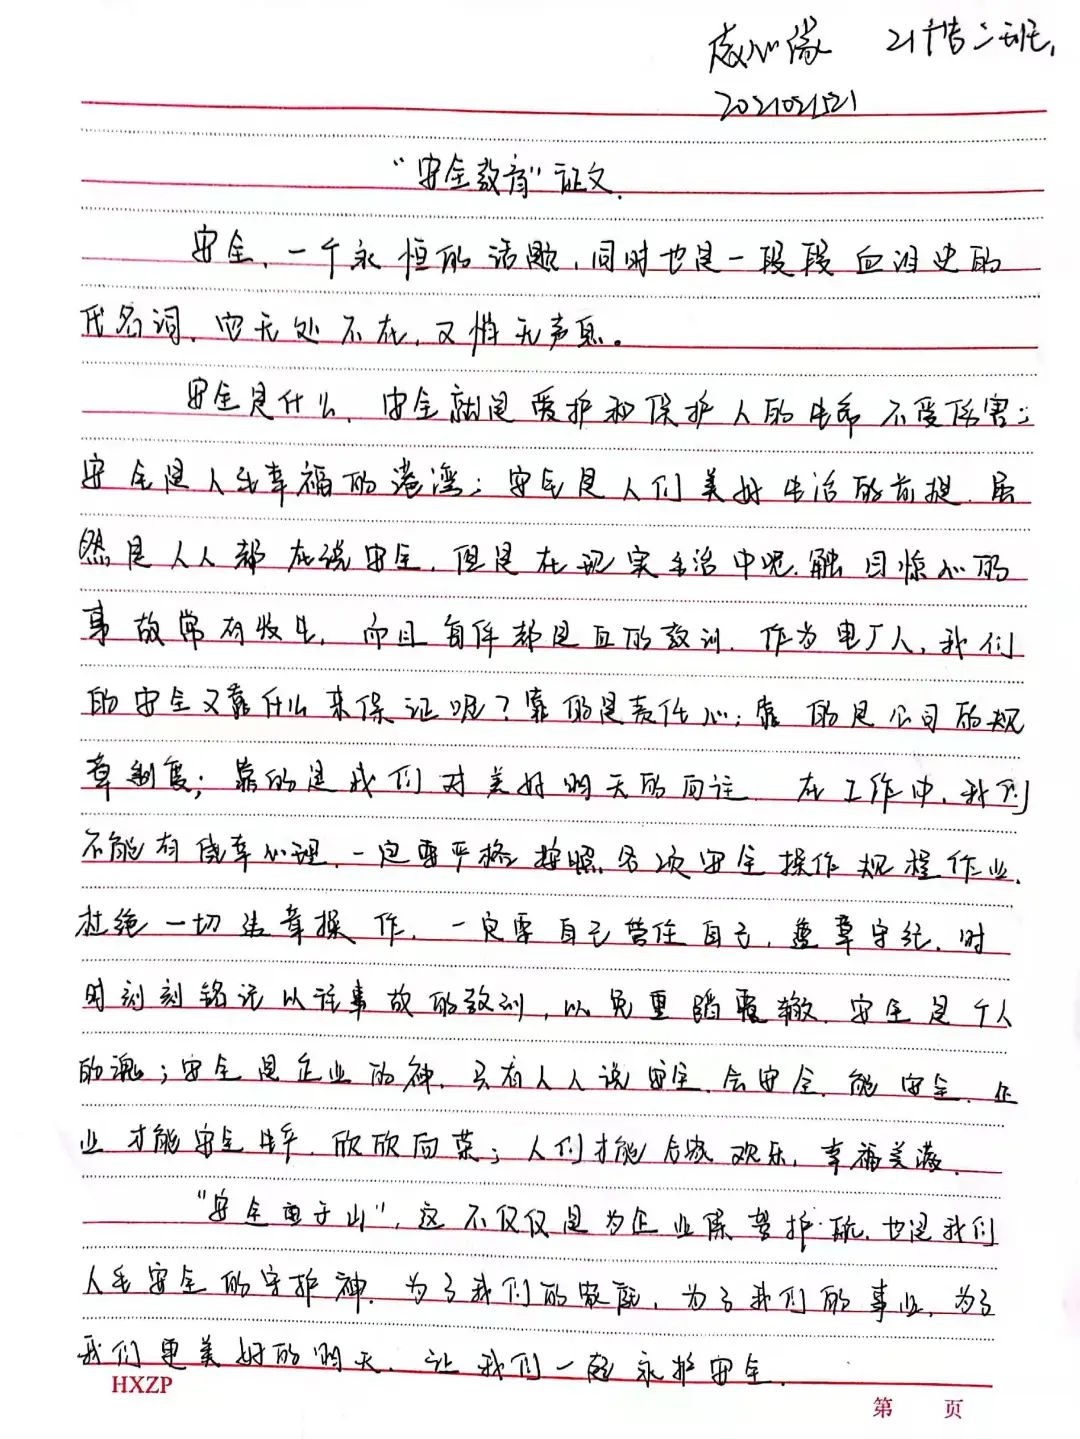 心缘 21 二班,
2021021521
“安全教育”证文.
安全,一个永恒的话题,同时也是一段段血泪史的
代名词,它无处不在,又悄无声息。
安全是什么,安全就是爱护和保护人的生命不受伤害;
安全是人生幸福的港湾;安全是人们美好生活的前提.虽
然是人人都在说安全,但是在现实生活中呢.触目惊心的
事故常有发生,而且每件都是血的教训.作为电厂人,我们
的安全又靠什么来保证呢?靠的是责任心;靠的是公司的规
章制度;靠的是我们对美好明天的向往.在工作中,我们
不能有侥幸心理.一定要严格按照各项安全操作规程作业.
杜绝一切违章操作.一定要自己管住自己,遵章守纪.时
时刻刻铭记以往事故的教训,以免重蹈覆辙.安全是个人
的魂;安全是企业的神.只有人人说安全.会安全.能安全.企
业才能安全生产.欣欣向荣;人们才能合家欢乐,幸福美满.
“安全重于山”,这不仅仅是为企业保驾护航,也是我们
人生安全的守护神.为了我们的家庭,为了我们的事业,为了
我们更美好的明天.让我们一起永护安全.
HXZP
第 页